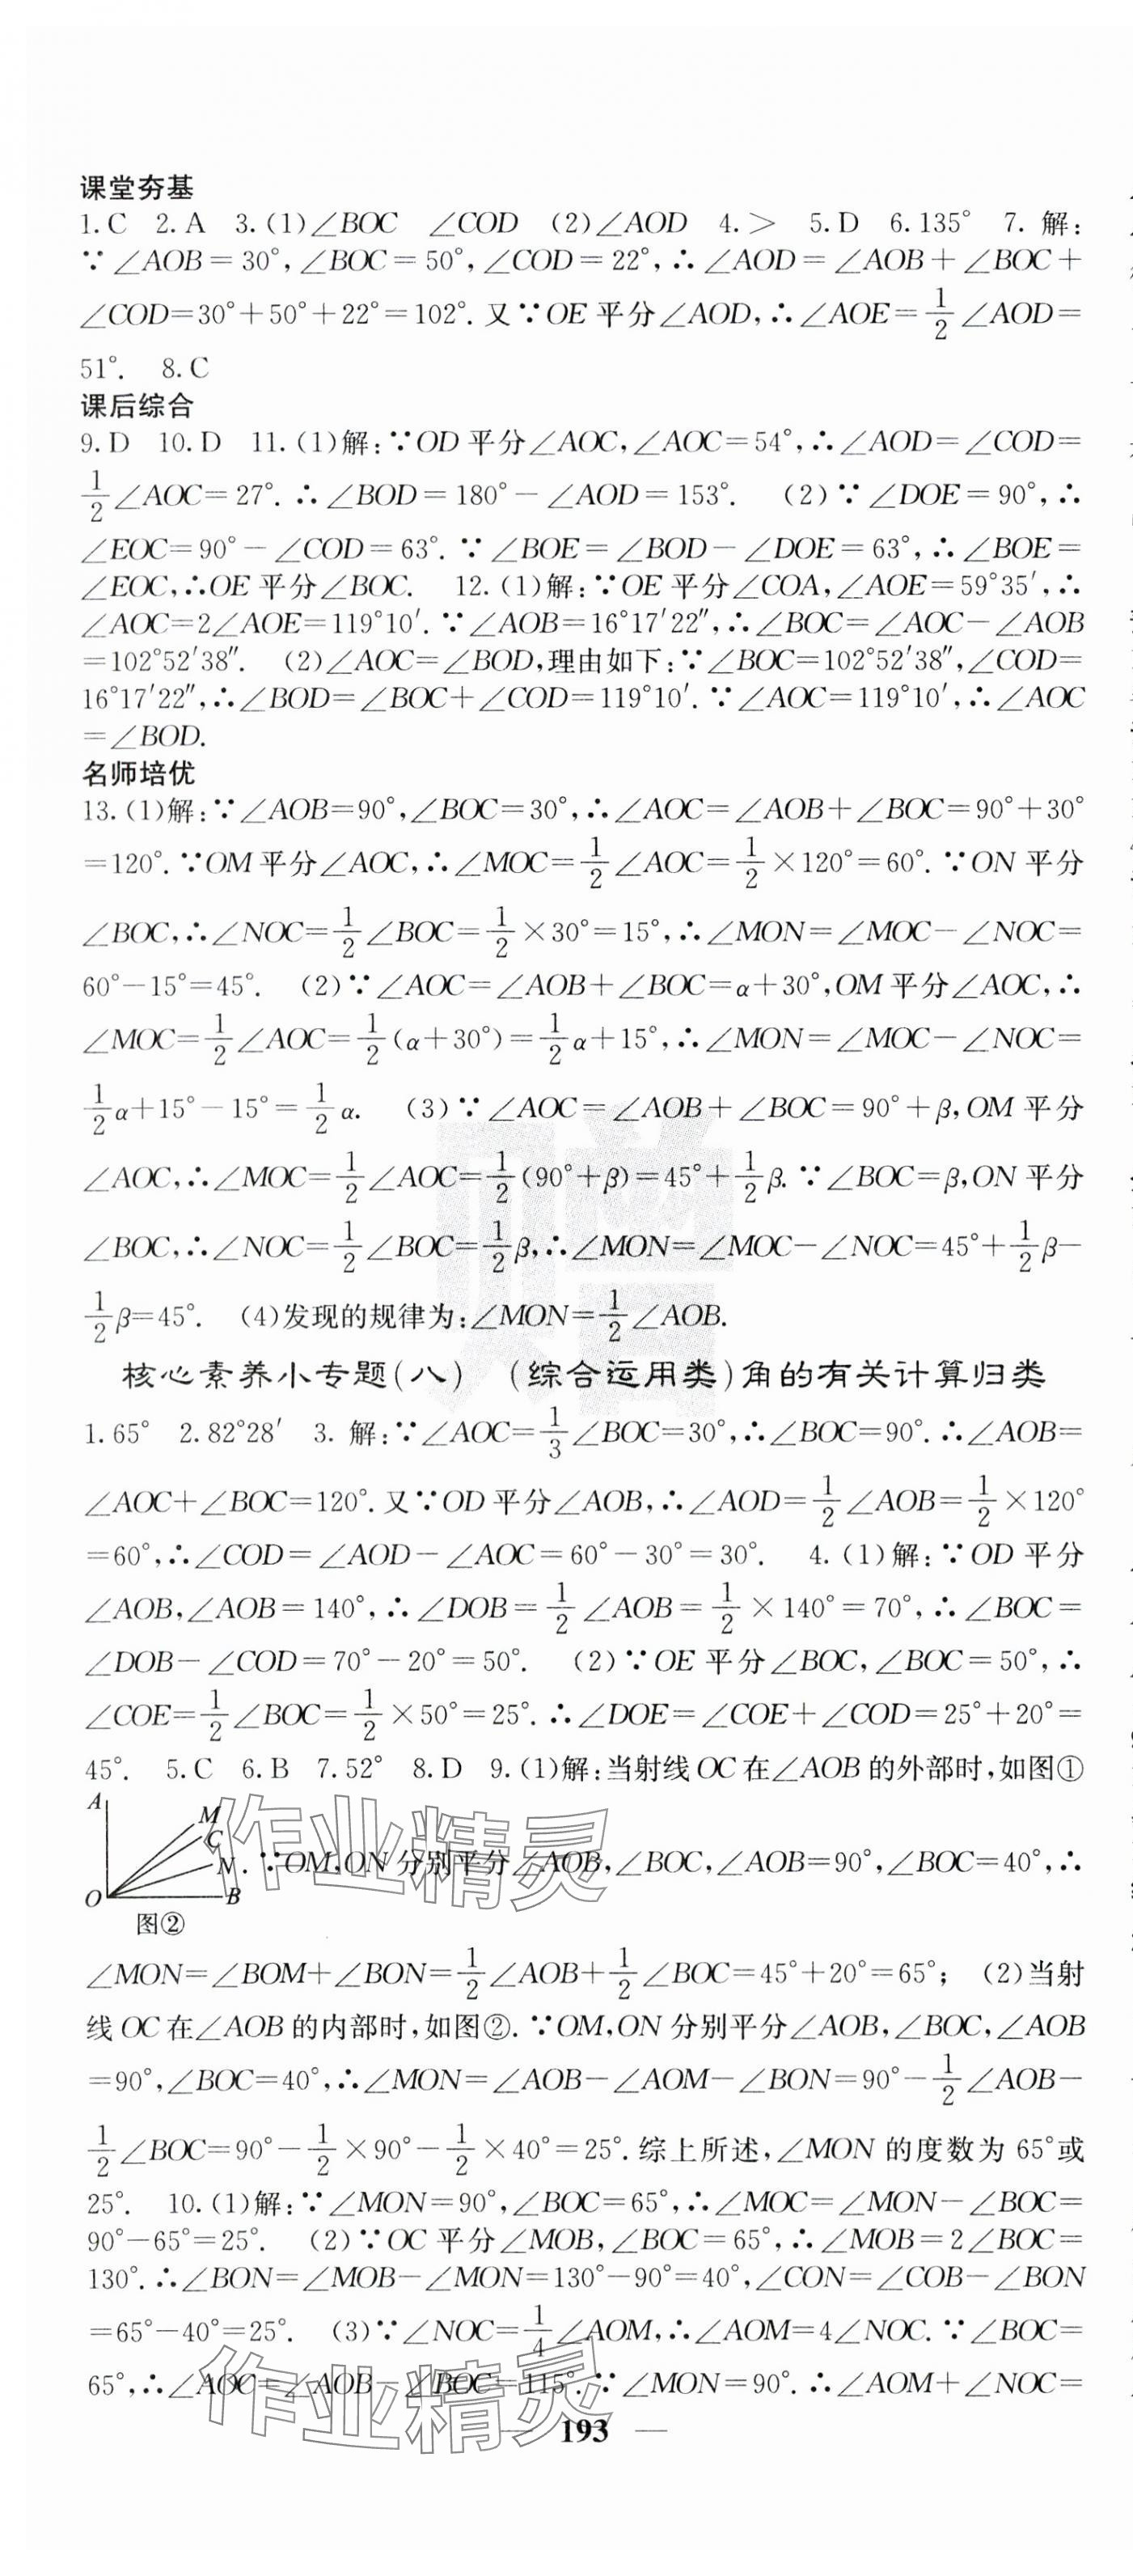 课堂夯基
1.C 2.A 3.(1)∠BOC ∠COD (2)∠AOD 4.> 5.D 6.135° 7. 解:
∵∠AOB=30°,∠BOC=50°,∠COD=22°,∴∠AOD=∠AOB+∠BOC+
∠COD=30°+50°+22°=102°. 又∵OE 平分∠AOD,∴∠AOE=1/2∠AOD=
51°. 8.C
课后综合
9.D 10.D 11.(1)解:∵OD 平分∠AOC,∠AOC=54°,∴∠AOD=∠COD=
1/2∠AOC=27°. ∴∠BOD=180°-∠AOD=153°. (2)∵∠DOE=90°,∴
∠EOC=90°-∠COD=63°. ∵∠BOE=∠BOD-∠DOE=63°,∴∠BOE=
∠EOC,∴OE 平分∠BOC. 12.(1)解:∵OE 平分∠COA,∠AOE=59°35′,∴
∠AOC=2∠AOE=119°10′. ∵∠AOB=16°17′22″,∴∠BOC=∠AOC-∠AOB
=102°52′38″. (2)∠AOC=∠BOD,理由如下:∵∠BOC=102°52′38″,∠COD=
16°17′22″,∴∠BOD=∠BOC+∠COD=119°10′. ∵∠AOC=119°10′,∴∠AOC
=∠BOD.
名师培优
13.(1)解:∵∠AOB=90°,∠BOC=30°,∴∠AOC=∠AOB+∠BOC=90°+30°
=120°. ∵OM 平分∠AOC,∴∠MOC=1/2∠AOC=1/2×120°=60°. ∵ON 平分
∠BOC,∴∠NOC=1/2∠BOC=1/2×30°=15°,∴∠MON=∠MOC-∠NOC=
60°-15°=45°. (2)∵∠AOC=∠AOB+∠BOC=α+30°,OM 平分∠AOC,∴
∠MOC=1/2∠AOC=1/2(α+30°)=1/2α+15°,∴∠MON=∠MOC-∠NOC=
1/2α+15°-15°=1/2α. (3)∵∠AOC=∠AOB+∠BOC=90°+β,OM 平分
∠AOC,∴∠MOC=1/2∠AOC=1/2(90°+β)=45°+1/2β. ∵∠BOC=β,ON 平分
∠BOC,∴∠NOC=1/2∠BOC=1/2β,∴∠MON=∠MOC-∠NOC=45°+1/2β-
1/2β=45°. (4)发现的规律为:∠MON=1/2∠AOB.
核心素养小专题(八) (综合运用类)角的有关计算归类
1.65° 2.82°28′ 3. 解:∵∠AOC=1/3∠BOC=30°,∴∠BOC=90°. ∴∠AOB=
∠AOC+∠BOC=120°. 又∵OD 平分∠AOB,∴∠AOD=1/2∠AOB=1/2×120°
=60°,∴∠COD=∠AOD-∠AOC=60°-30°=30°. 4.(1)解:∵OD 平分
∠AOB,∠AOB=140°,∴∠DOB=1/2∠AOB=1/2×140°=70°,∴∠BOC=
∠DOB-∠COD=70°-20°=50°. (2)∵OE 平分∠BOC,∠BOC=50°,∴
∠COE=1/2∠BOC=1/2×50°=25°. ∴∠DOE=∠COE+∠COD=25°+20°=
45°. 5.C 6.B 7.52° 8.D 9.(1)解:当射线 OC 在∠AOB 的外部时,如图①
A M C N O B 图②
. ∵OM,ON 分别平分∠AOB,∠BOC,∠AOB=90°,∠BOC=40°,∴
∠MON=∠BOM+∠BON=1/2∠AOB+1/2∠BOC=45°+20°=65°; (2)当射
线 OC 在∠AOB 的内部时,如图②. ∵OM,ON 分别平分∠AOB,∠BOC,∠AOB
=90°,∠BOC=40°,∴∠MON=∠AOB-∠AOM-∠BON=90°-1/2∠AOB-
1/2∠BOC=90°-1/2×90°-1/2×40°=25°. 综上所述,∠MON 的度数为 65°或
25°. 10.(1)解:∵∠MON=90°,∠BOC=65°,∴∠MOC=∠MON-∠BOC=
90°-65°=25°. (2)∵OC 平分∠MOB,∠BOC=65°,∴∠MOB=2∠BOC=
130°. ∴∠BON=∠MOB-∠MON=130°-90°=40°,∠CON=∠COB-∠BON
=65°-40°=25°. (3)∵∠NOC=1/4∠AOM,∴∠AOM=4∠NOC. ∵∠BOC=
65°,∴∠AOC=∠AOB-∠BOC=115°. ∵∠MON=90°. ∴∠AOM+∠NOC=
193
作业精灵
作业精灵